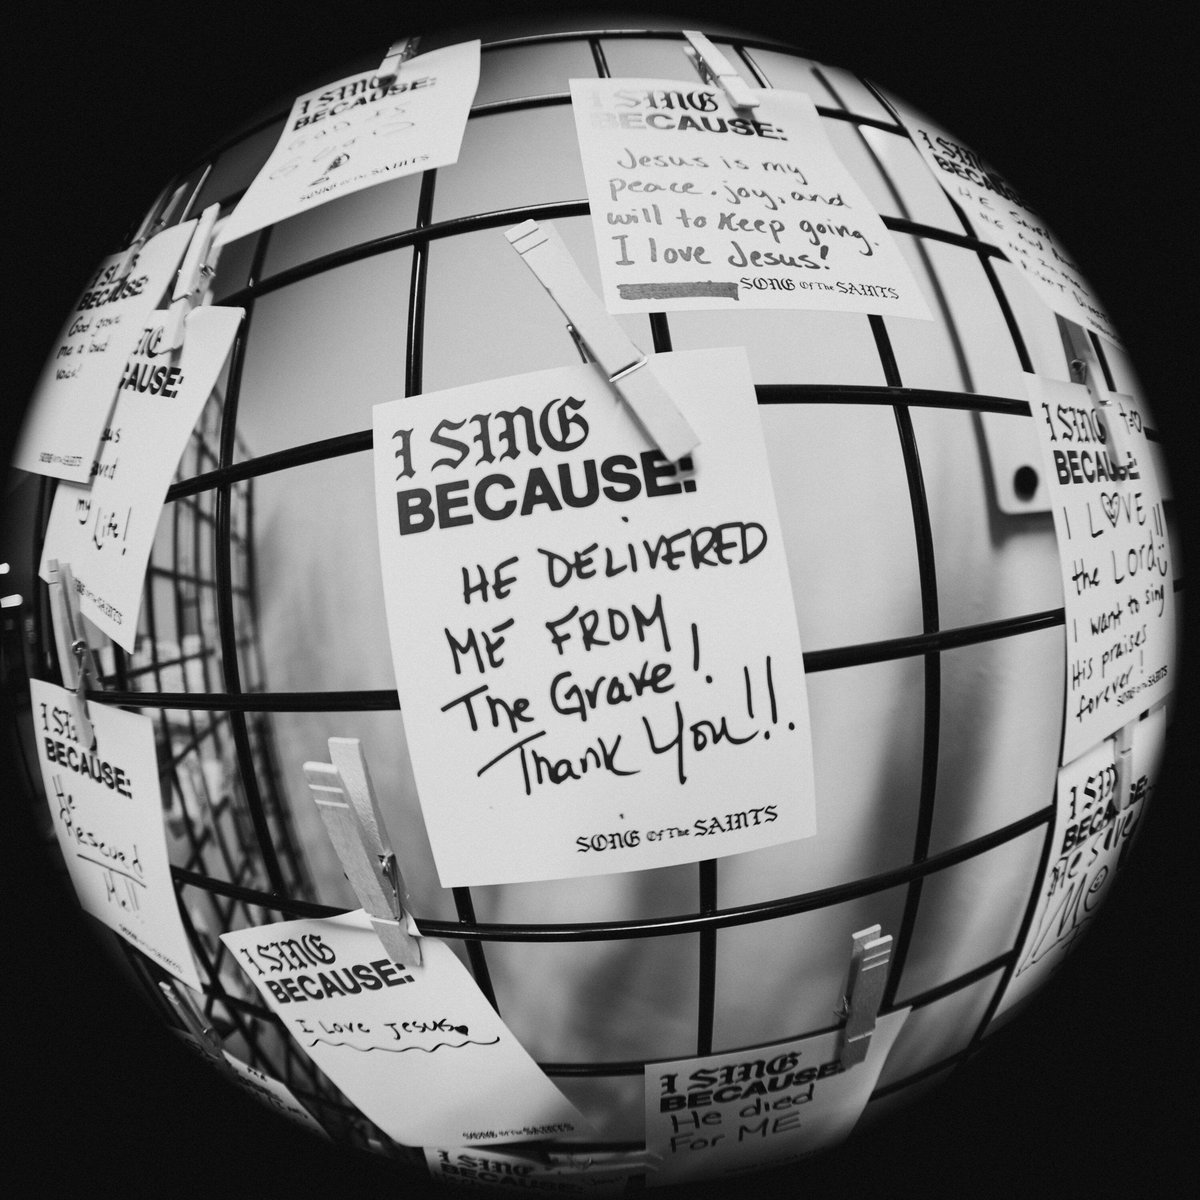 I SING
BECAUSE:
GOD IS
GOOD
SONG Of The SAINTS
I SING
BECAUSE:
Jesus is my
peace, joy, and
will to keep going.
I love Jesus!
SONG Of The SAINTS
I SING
BECAUSE:
HE
I SING
BECAUSE:
God gave
me a loud
voice!
SONG Of The SAINTS
SING
CAUSE:
my Life!
SONG Of The SAINTS
I SING
BECAUSE:
HE DELIVERED
ME FROM
The Grave!
Thank You!!!
SONG Of The SAINTS
I SING
BECAUSE:
I LOVE
the Lord!!
I want to sing
His praises
forever!
SONG Of The SAINTS
I SING
BECAUSE:
He
Rescued
Me!!
SONG Of The SAINTS
I SING
BECAUSE:
He saved
Me
I SING
BECAUSE:
I Love Jesus
SONG Of The SAINTS
I SING
BECAUSE:
He died
For ME
I SING
BECAUSE: